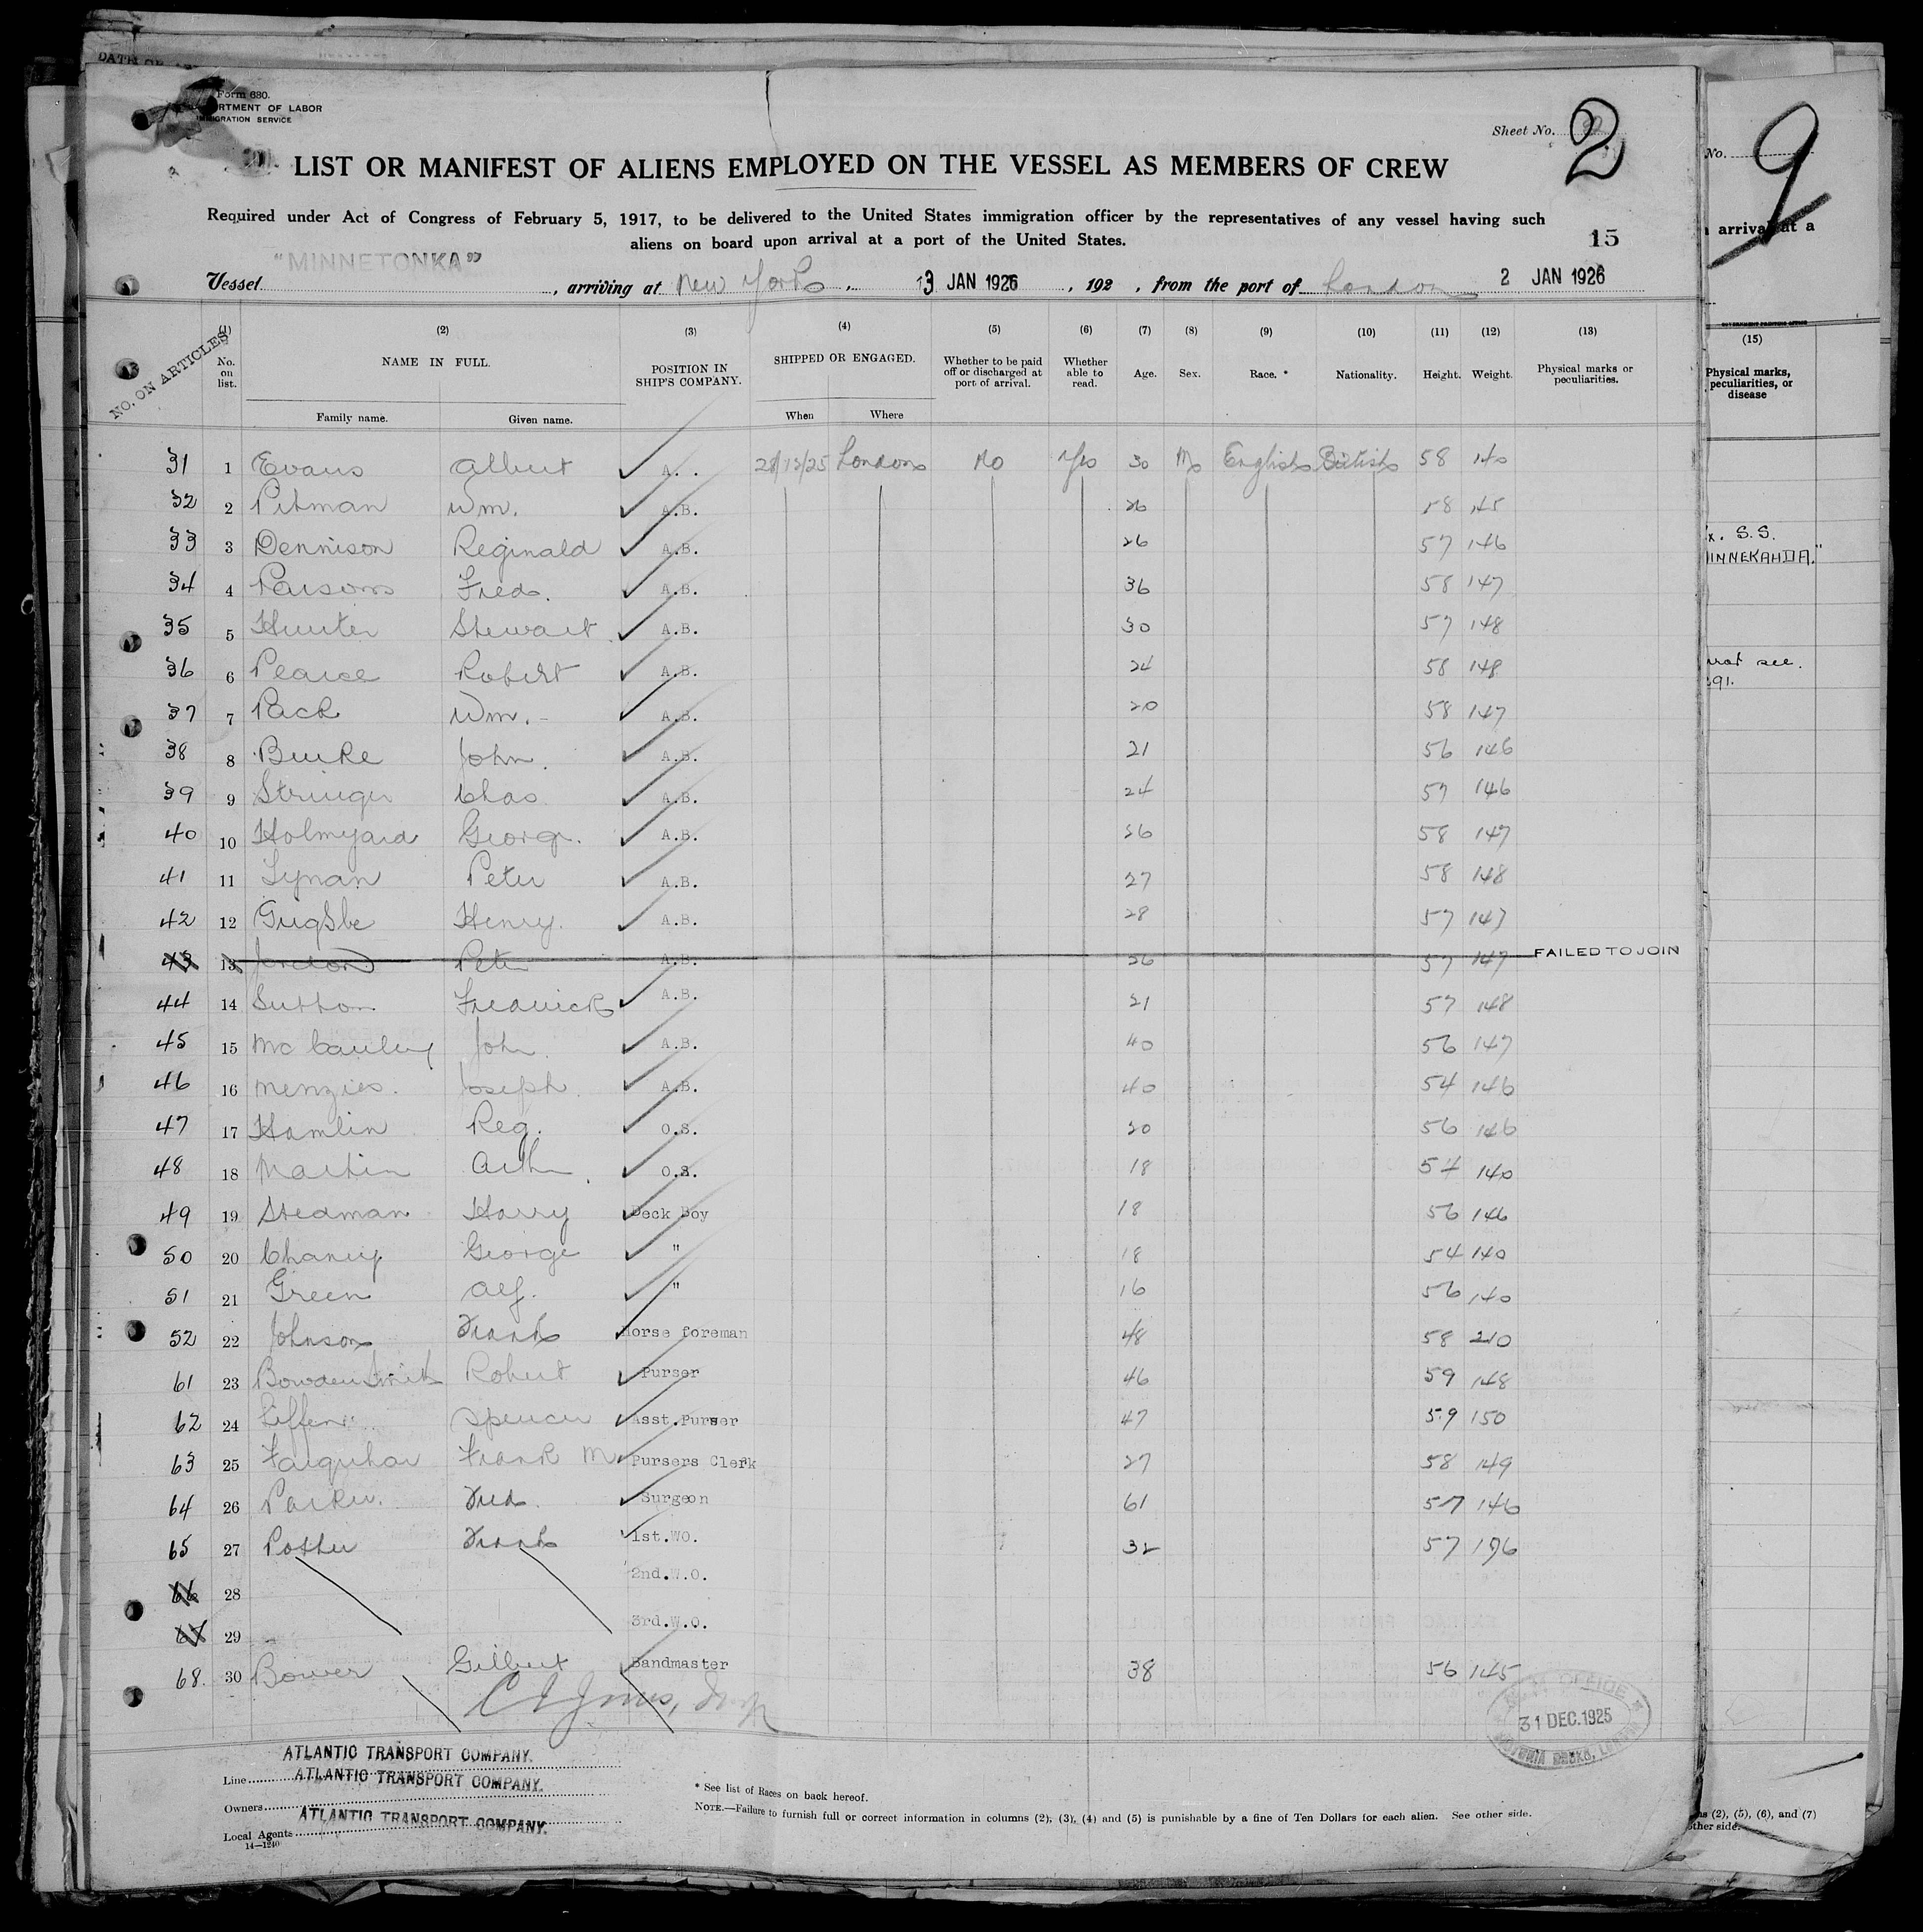 DATE OF
Form 680.
DEPARTMENT OF LABOR
IMMIGRATION SERVICE
Sheet No. 2
LIST OR MANIFEST OF ALIENS EMPLOYED ON THE VESSEL AS MEMBERS OF CREW
Required under Act of Congress of February 5, 1917, to be delivered to the United States immigration officer by the representatives of any vessel having such
aliens on board upon arrival at a port of the United States.
15
Vessel "MINNETONKA", arriving at New York, 13 JAN 1926, 192 , from the port of London 2 JAN 1926
NO. ON ARTICLES
(1) (2) (3) (4) (5) (6) (7) (8) (9) (10) (11) (12) (13)
No. on list. NAME IN FULL. POSITION IN SHIP'S COMPANY. SHIPPED OR ENGAGED. Whether to be paid off or discharged at port of arrival. Whether able to read. Age. Sex. Race. * Nationality. Height. Weight. Physical marks or peculiarities.
Family name. Given name. When Where
31 1 Evans Albert A. . 28/12/25 London No Yes 30 M English British 58 140
32 2 Pitman Wm. A.B. 26 58 145
33 3 Dennison Reginald A.B. 26 57 146
34 4 Parsons Fred. A.B. 36 58 147
35 5 Hunter Stewart A.B. 30 57 148
36 6 Pearce Robert A.B. 24 58 148
37 7 Pack Wm. - A.B. 20 58 147
38 8 Burke John. A.B. 21 56 146
39 9 Stringer Chas A.B. 24 57 146
40 10 Holmyard George. A.B. 26 58 147
41 11 Lynan Peter A.B. 27 58 148
42 12 Henry. A.B. 28 57 147
43 13 Jordon Peter A.B. 26 57 147 FAILED TO JOIN
44 14 Sutton Frederick A.B. 21 57 148
45 15 Mc Cauley John. A.B. 40 56 147
46 16 Menzies. Joseph. A.B. 40 54 146
47 17 Hamlin Reg. O.S. 20 56 146
48 18 Martin Arth O.S. 18 54 140
49 19 Stedman Harry Deck Boy 18 56 146
50 20 Chaney George " 18 54 140
51 21 Green Alf. " 16 56 140
52 22 Johnson Frank Horse foreman 48 58 210
61 23 Bowden Smith Robert Purser 46 59 148
62 24 Spencer Asst.Purser 47 59 150
63 25 Farquhar Frank M Pursers Clerk 27 58 149
64 26 Parker. Fred. Surgeon 61 57 146
65 27 Potter Frank 1st.WO. 32 57 196
66 28 2nd.W.O.
67 29 3rd.W.O.
68. 30 Bower Gilbert Bandmaster 38 56 145
31 DEC.1925
Line ATLANTIC TRANSPORT COMPANY.
Owners ATLANTIC TRANSPORT COMPANY.
Local Agents ATLANTIC TRANSPORT COMPANY.
14—1240
* See list of Races on back hereof.
NOTE.—Failure to furnish full or correct information in columns (2), (3), (4) and (5) is punishable by a fine of Ten Dollars for each alien. See other side.
No. 9
arrival at a
GOVERNMENT PRINTING OFFICE
(15)
Physical marks,
peculiarities, or
disease
x. S.S.
INNEKAHDA."
see.
91.
(2), (5), (6), and (7)
other side.